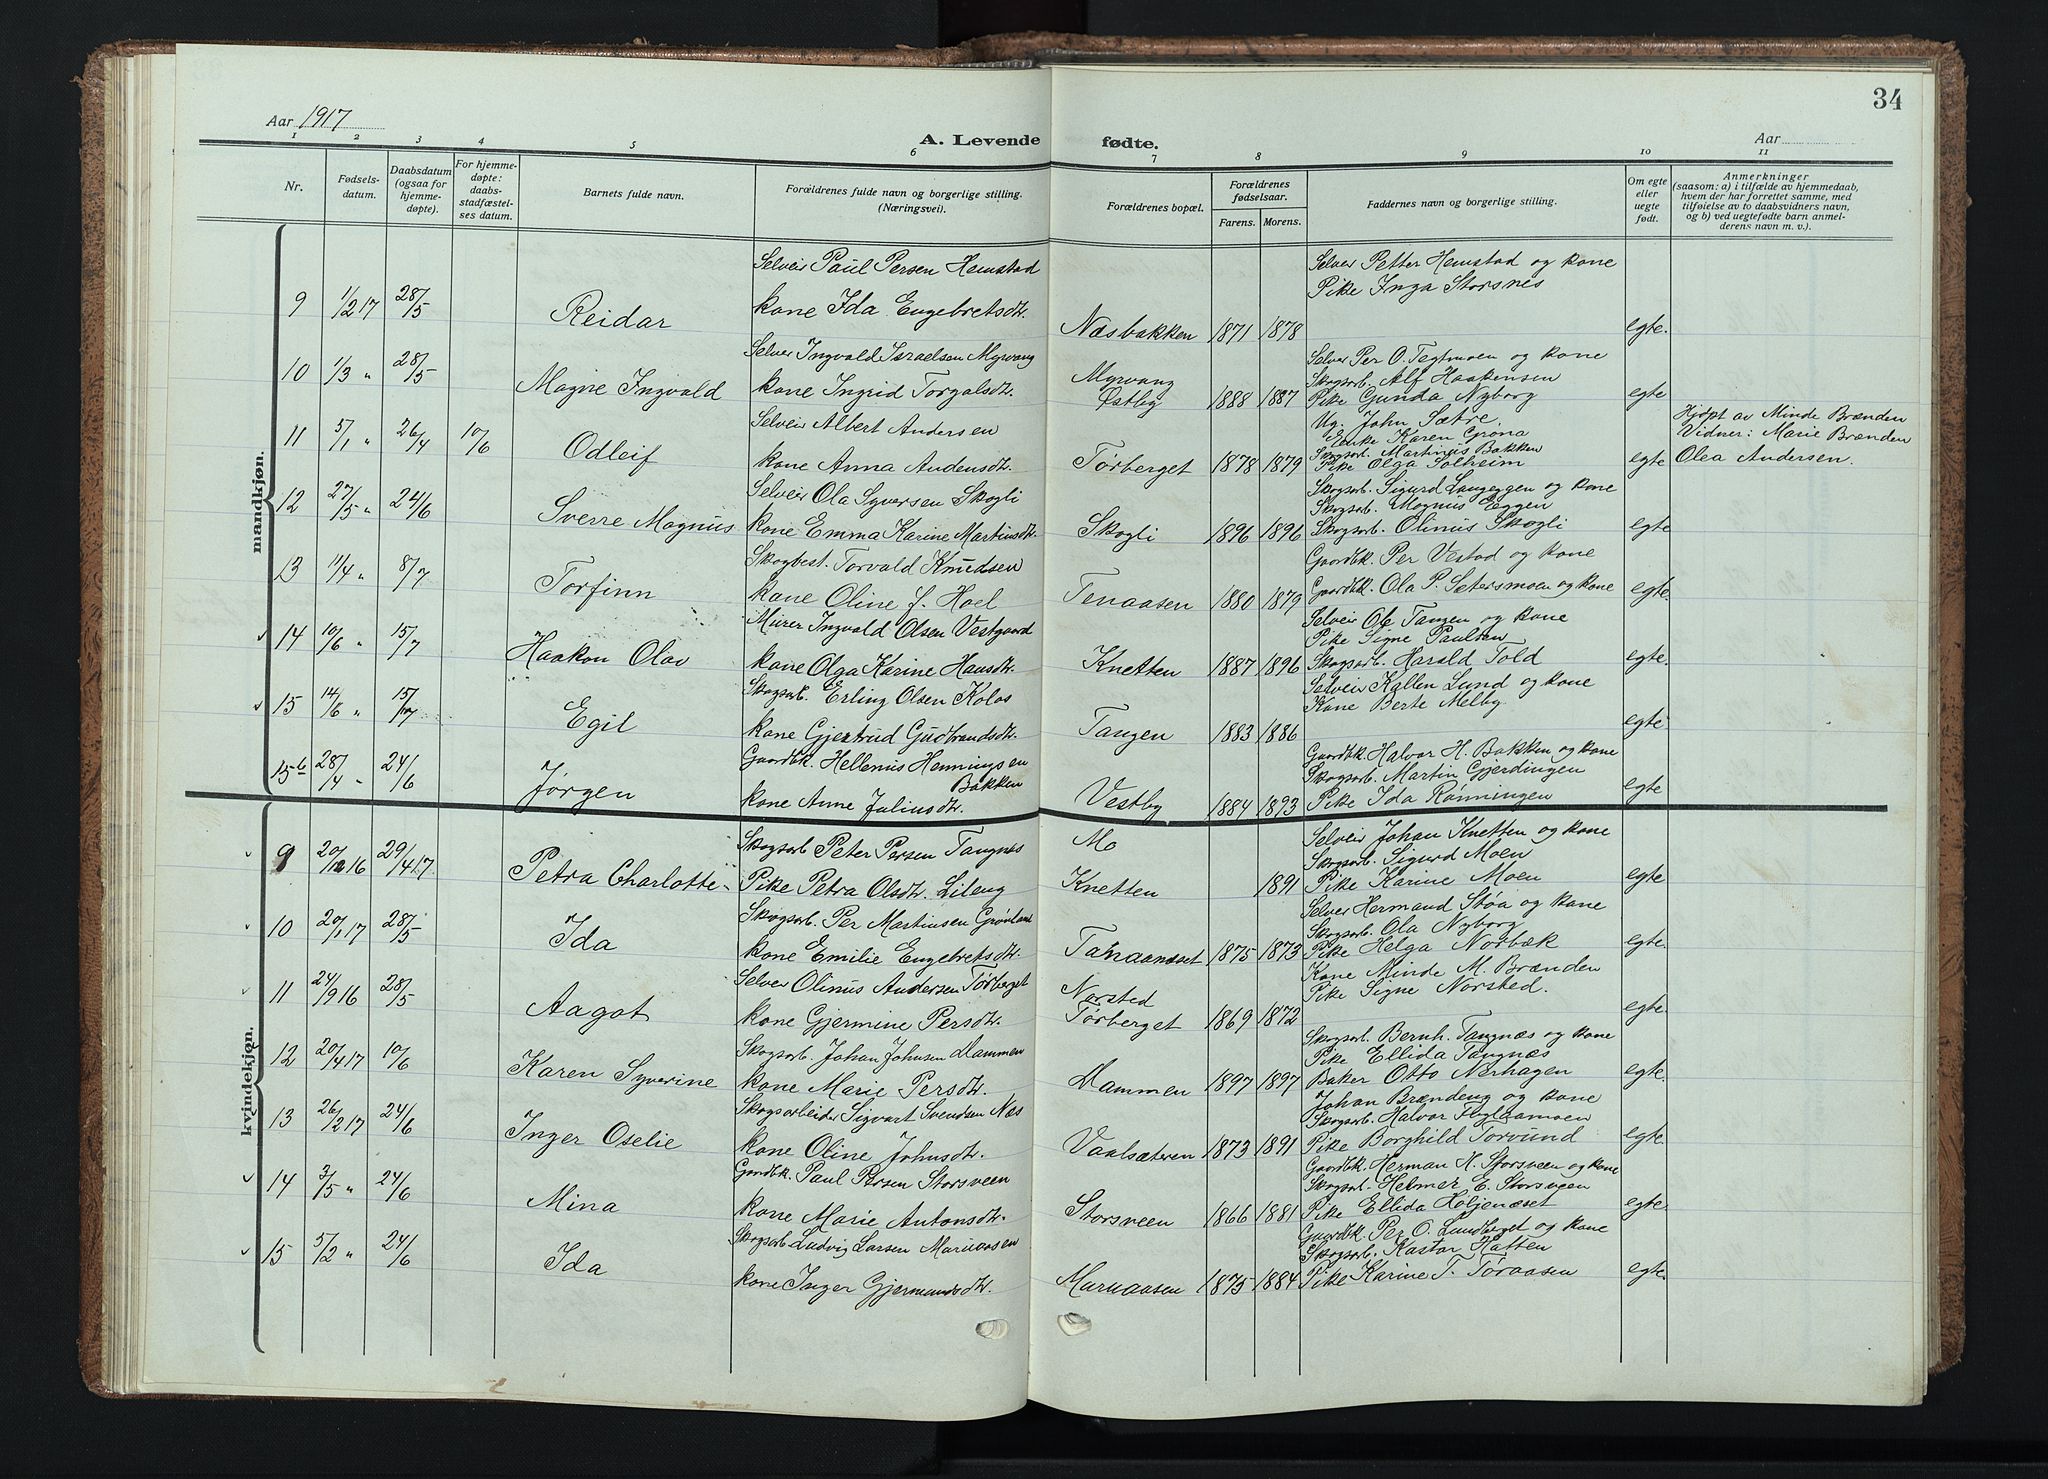 34
Aar 1917
Aar
1 2 3 4 5 6 7 8 9 10 11
A. Levende fødte.
Nr.
Fødsels-
datum.
Daabsdatum
(ogsaa for
hjemme-
døpte).
For hjemme-
døpte:
daabs-
stadfæstel-
ses datum.
Barnets fulde navn.
Forældrenes fulde navn og borgerlige stilling.
(Næringsvei).
Forældrenes bopæl.
Forældrenes
fødselsaar.
Farens. Morens.
Faddernes navn og borgerlige stilling.
Om egte
eller
uegte
født.
Anmerkninger
(saasom: a) i tilfælde av hjemmedaab,
hvem der har forrettet samme, med
tilføielse av to daabsvidners navn,
og b) ved uegtefødte barn anmel-
derens navn m. v.).
mandkjøn.
Selveir Paul Persen Hemstad
Selveir Petter Hemstad og kone
Pike Inga Storsnes
9 1/2 17 28/5 Reidar kone Ida Engebretsdtr. Næsbakken 1871 1878 egte.
Selveir Ingvald Israelsen Myrvang
Selveir Per O. Tegtmoen og kone
Skogsarb. Alf Haakensen
10 1/3 " 28/5 Magne Ingvald kone Ingrid Torgalsdtr. Myrvang
Østby 1888 1887 Pike Gunda Nyborg egte
Selveir Albert Andersen
Ug. John Sætre,
Enke Karen Grøna
Skogsarb. Martinus Bakken
Hjdpt av Minde Brænden
Vidner: Marie Brænden
11 5/1 " 26/4 10/6 Odleif kone Anna Audensdtr. Tørberget 1878 1879 Pike Olga Solheim egte Olea Andersen.
Selveir Ola Syversen Skogli
Skogsarb. Sigurd Langeggen og kone
Skogsarb. Magnus Eggen
12 27/5 " 24/6 Sverre Magnus kone Emma Karine Martinsdtr. Skogli 1896 1896 Skogsarb. Olinus Skogli egte
Skogbest. Torvald Knudsen
Gaardbk. Per Vestad og kone
13 11/4 " 8/7 Torfinn kone Oline f. Hoel Tenaasen 1880 1879 Gaardbk. Ola P. Setersmoen og kone egte.
Murer Ingvald Olsen Vestgaard
Selveir Ole Tangen og kone
Pike Signe Paulsen
14 10/6 " 15/7 Haakon Olav kone Olga Karine Hansdtr. Knetten 1887 1896 Skogsarb. Harald Told egte.
Skogsarb. Erling Olsen Kolos
Selveir Kallen Lund og kone
Kone Berte Melby
15 14/6 " 15/7 Egil kone Gjertrud Gudbrandsdtr. Tangen 1883 1886 egte
Gaardbk. Hellenus Henningsen
Bakken
Gaardbk. Halvor H. Bakken og kone
Skogsarb. Martin Gjerdingen
15b 28/4 " 24/6 Jørgen kone Anne Juliusdtr. Vestby 1884 1893 Pike Ida Rønningen egte
kvindekjøn.
Skogsarb Peter Persen Tangnes
Mo
Selveir Johan Knetten og kone
Skogsarb. Sigurd Moen
9 20/12 16 29/4 17 Petra Charlotte Pike Petra Olsdtr. Lileng Knetten 1891 Pike Karine Moen egte
Skogsarb. Per Martinsen Grønland
Selveir Hermand Støa og kone
Skogsarb. Ola Nyborg
10 20/1 17 28/5 Ida kone Emilie Engebretsdtr. Tanaanæset 1875 1873 Pike Helga Norbæk egte
Selveir Olinus Andersen Tørberget
Kone Minde M. Brænden
Pike Signe Norsted.
11 24/9 16 28/5 Aagot kone Gjermine Persdtr. Norsted
Tørberget 1869 1872 egte.
Skogsarb. Johan Johnsen Hammen
Skogsarb. Bernh. Tangnæs og kone
Pike Ellida Tangnæs
12 20/4 17 10/6 Karen Syverine kone Marie Persdtr. Hammen 1897 1897 Baker Otto Nerhagen egte.
Skogsarbeider Sigvart Svendsen Næs
Johan Brændeng og kone
Skogsarb. Halvor Teglaamoen
13 26/2 17 24/6 Inger Oselie kone Oline Johnsdtr. Vaalsæteren 1873 1891 Pike Borghild Torvund egte
Gaardbk. Paul Persen Storsveen
Gaardbk. Herman H. Storsveen og kone
Skogsarb. Helmer E. Storsveen
14 3/5 " 24/6 Mina kone Marie Antonsdtr. Storsveen 1866 1881 Pike Ellida Holjenæset egte
Skogsarb Ludvig Larsen Maruaasen
Gaardbk. Per O. Lundberget og kone
Skogsarb. Kastor Hatten
15 5/2 " 24/6 Ida kone Inger Gjermundsdtr. Maruaasen 1875 1884 Pike Karine T. Tøraasen egte.